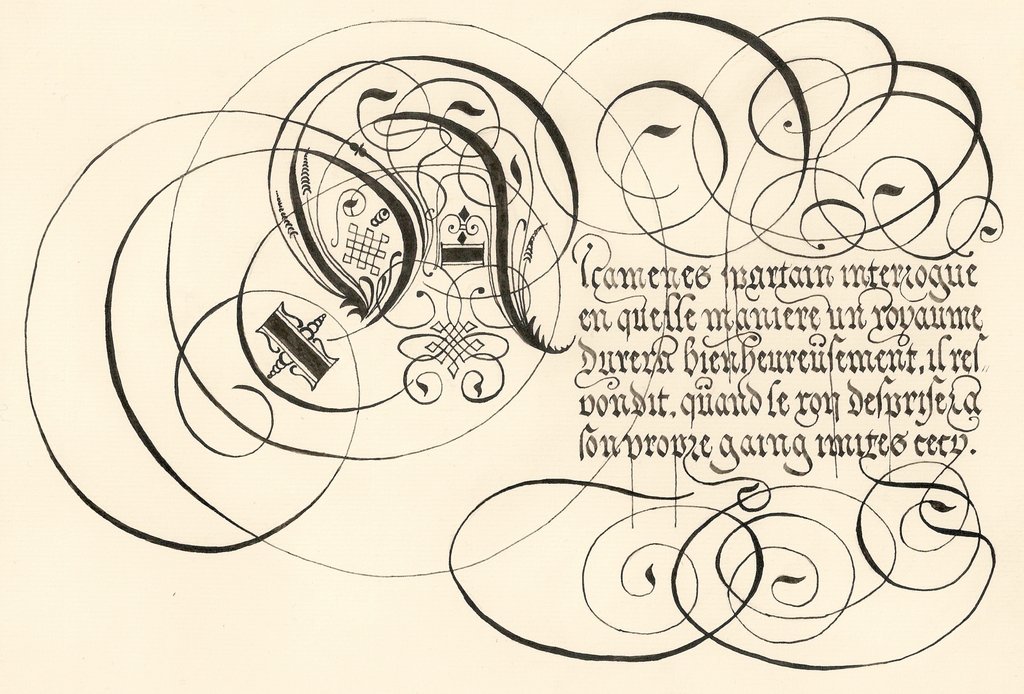 Alcamenes spartain interrogue
en quelle maniere un royaume
durera bienheureüsement, il res=
pondit, qüand le roy desprisera
son propre gaing imites cecy.